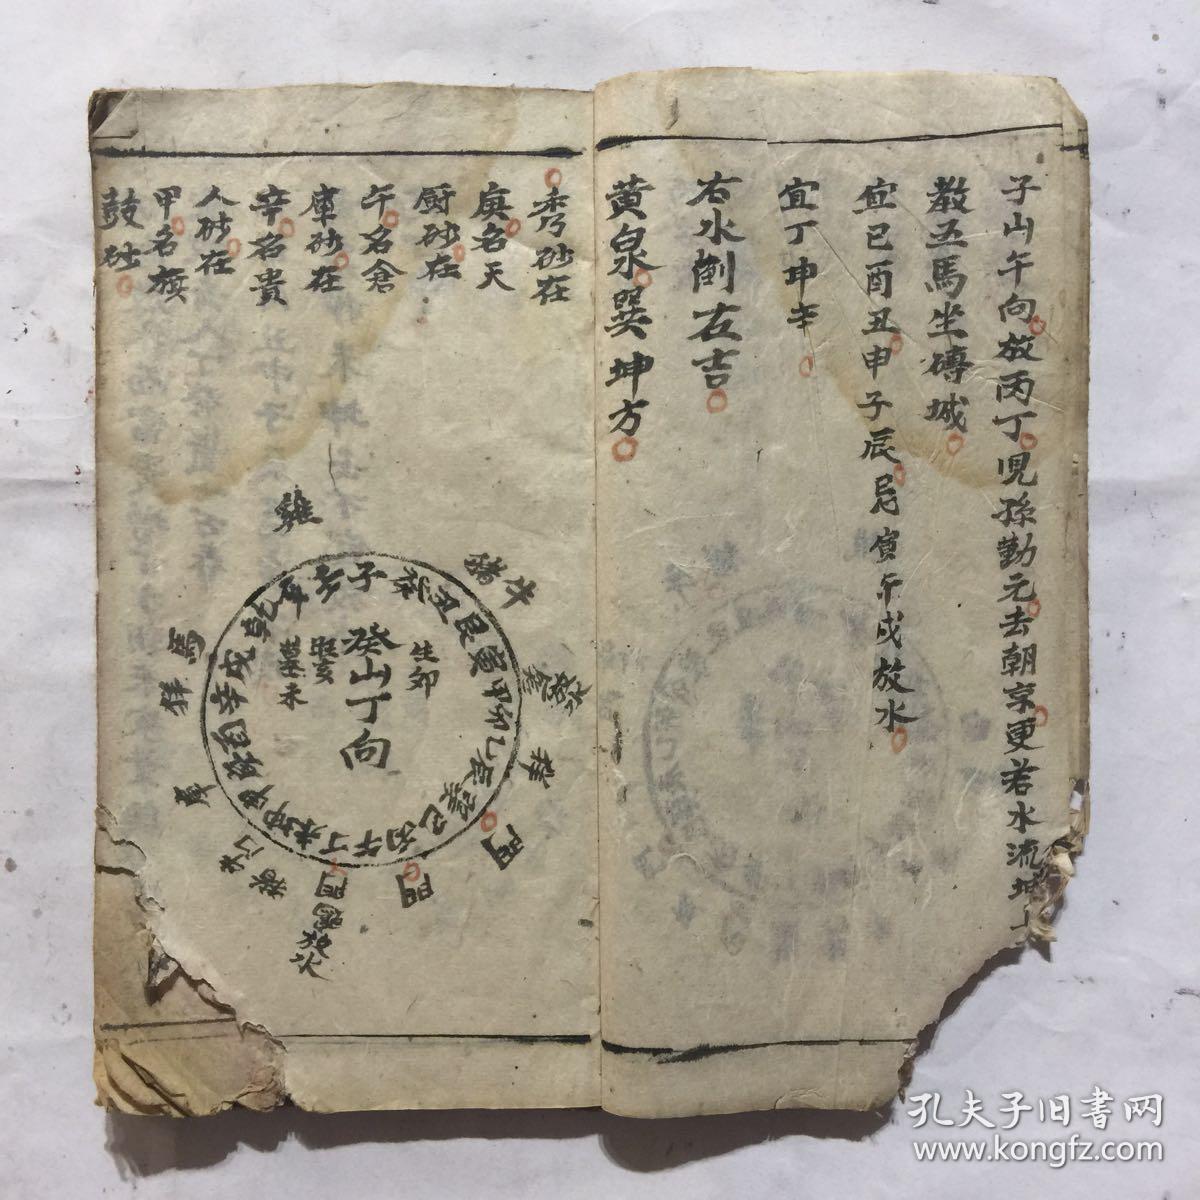 子山午向放丙丁児孫勤元去朝京更若水流坤
教五馬坐磚城
宜巳酉丑申子辰忌寅午戌放水
宜丁坤辛
右水倒左吉
黄泉巽坤方
秀砂在
庚名天
厨砂在
午名倉
庫砂在
辛名貴
人砂在
甲名旗
鼓砂
雞
猪牛
子癸丑艮寅甲卯乙辰巽巳丙午丁未坤庚酉辛戌乾
癸山丁向
生卯
旺亥
墓未
馬
門
門
門
放水
孔夫子旧书网
www.kongfz.com